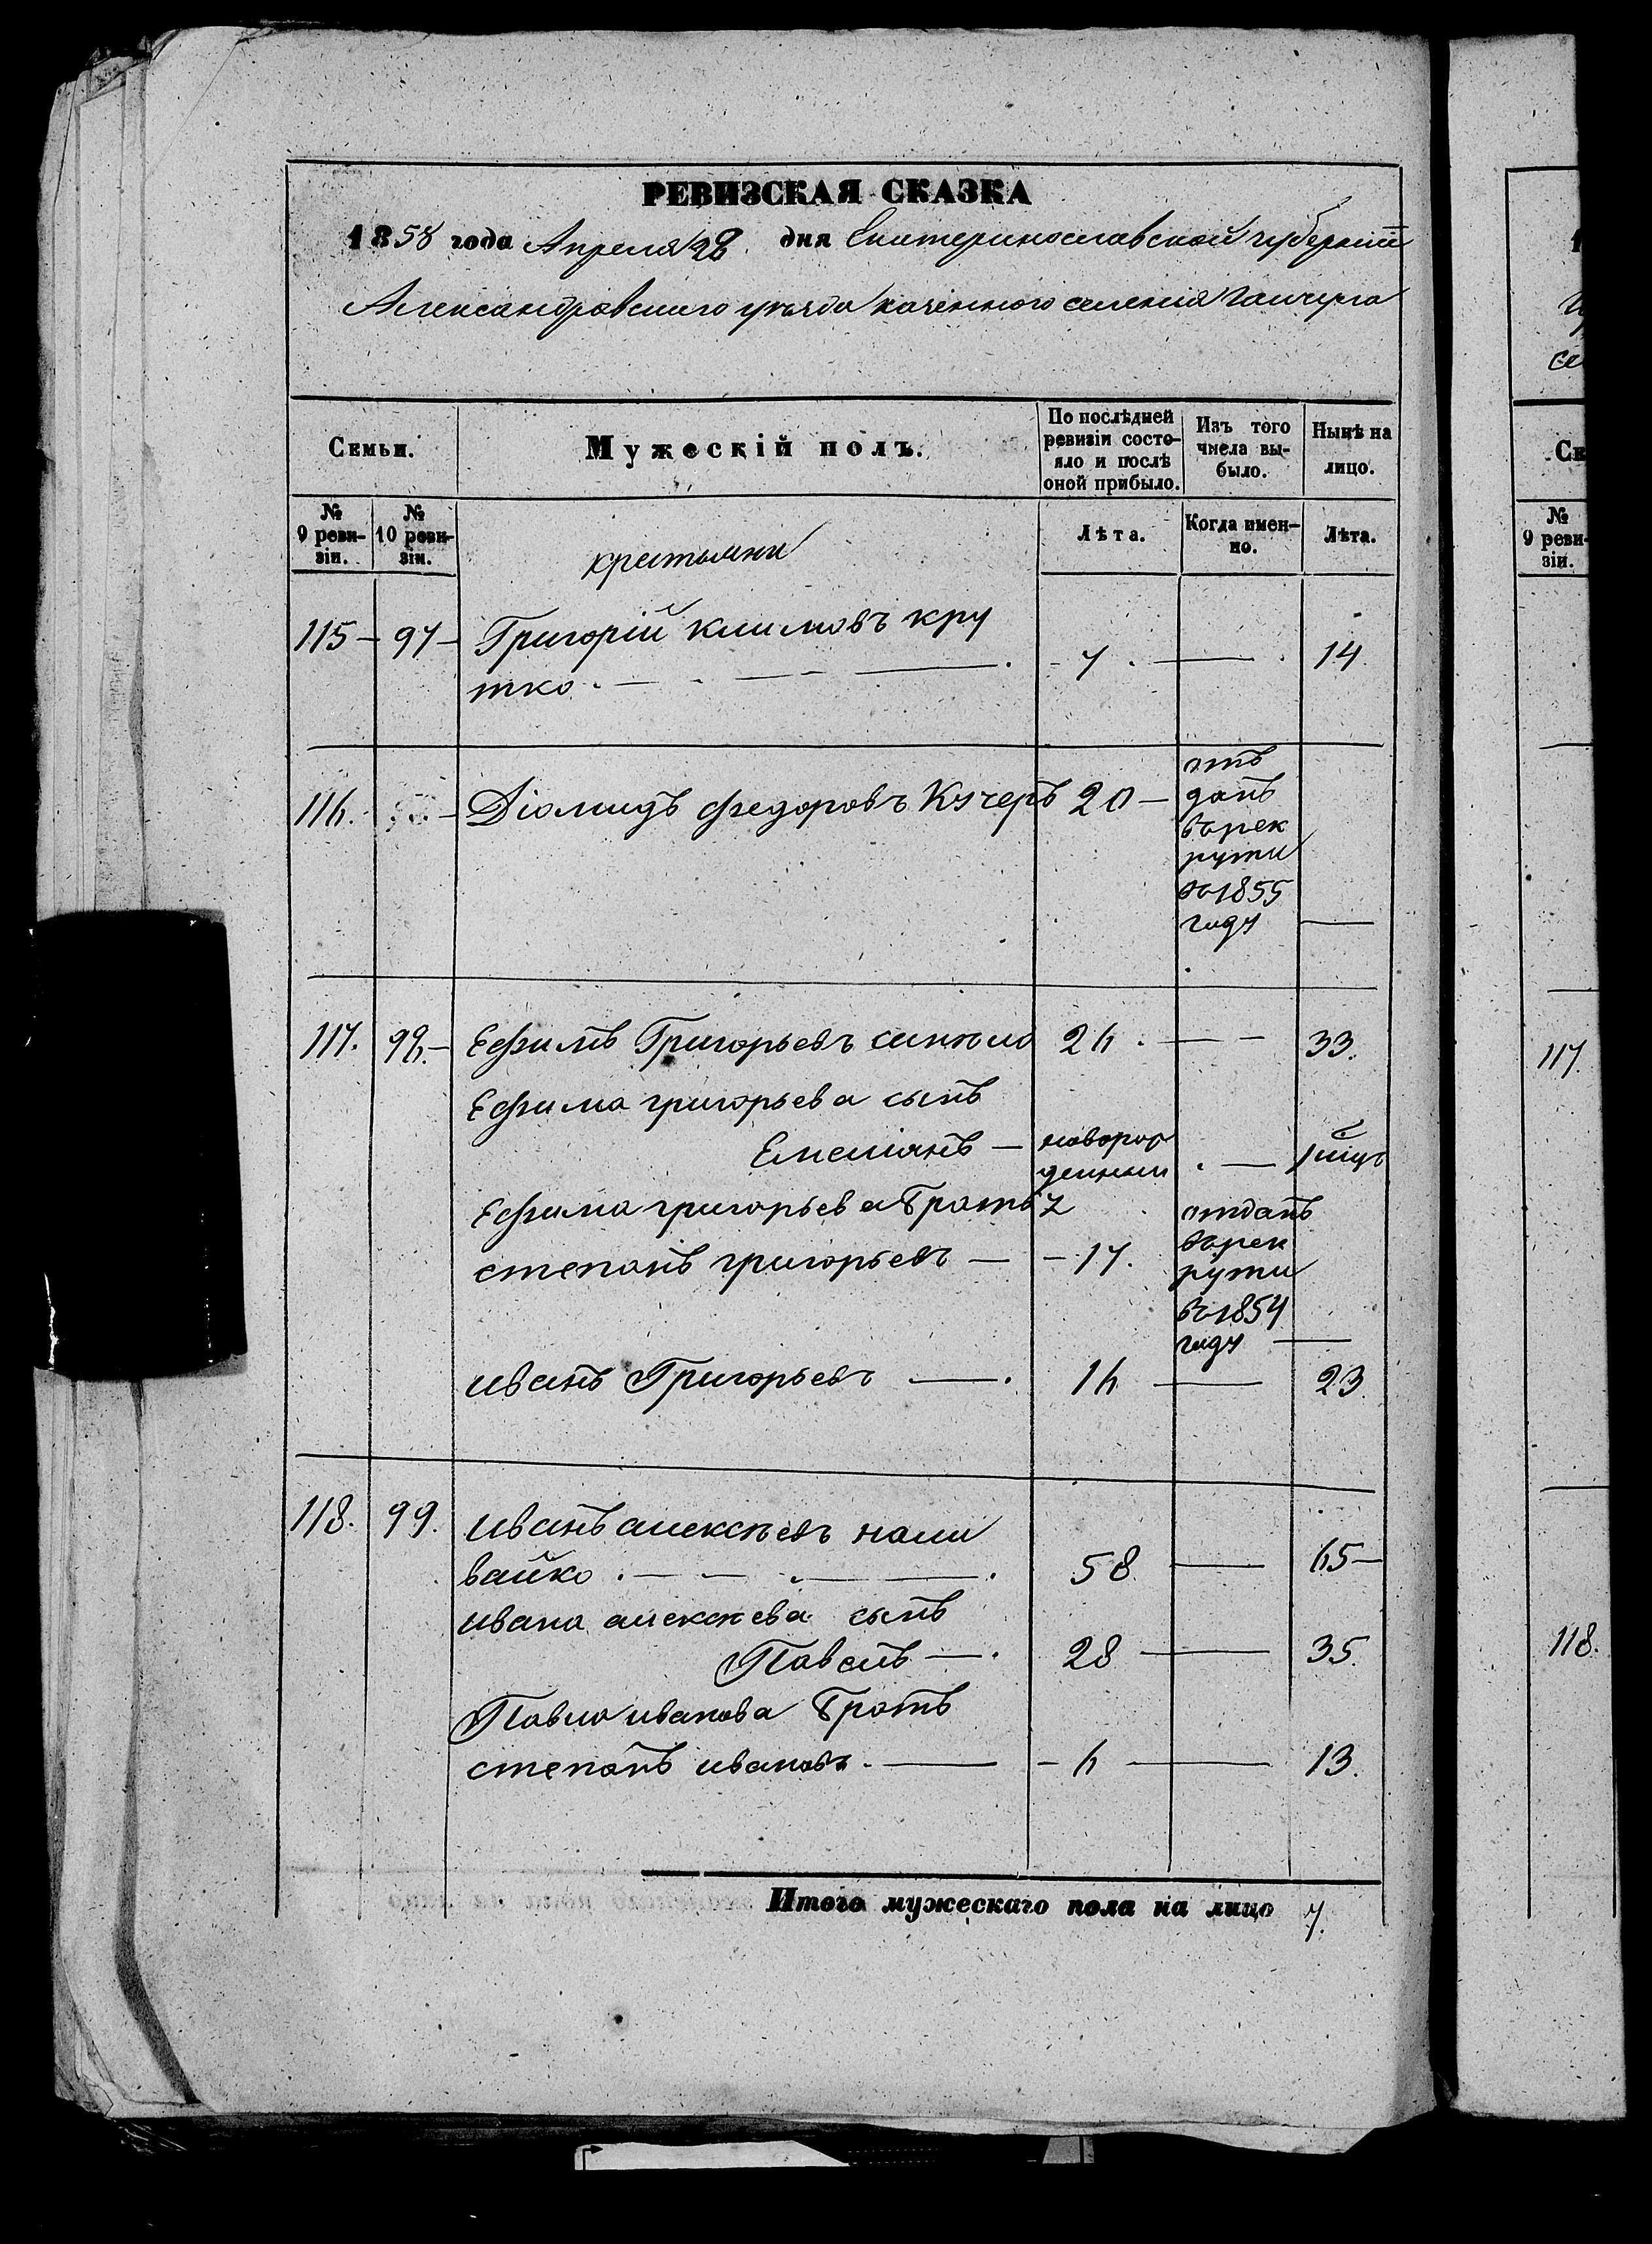 РЕВИЗСКАЯ СКАЗКА
1858 года Апреля 28 дня Екатеринославской губернии
Александровского уезда казенного селения Гайчура
Семьи.
Мужескій полъ.
По послѣдней ревизіи состо-
яло и послѣ
оной прибыло.
Изъ того
числа вы-
было.
Нынѣ на
лицо.
№
9 реви-
зіи.
№
10 реви-
зіи.
Лѣта.
Когда имен-
но.
Лѣта.
крестьяни
115 - 97 - Григорій климовъ кру
тко. - 7. — 14.
116. Діомидъ федоровъ Кучеръ 20 -
от
данъ
въ рек
рути
въ 1855
году —
117. 98. - Ефимъ Григорьевъ синкло 26. — 33.
Ефима григорьева сынъ
Емелianъ — новорож
денный — 1
Ефима григорьева 1 братъ 2
степанъ григорьевъ — - 17.
отданъ
въ рек
рути
въ 1854
году —
иванъ Григорьевъ —. 16 — 23.
118. 99. иванъ алексѣевъ нали
вайко. 58 — 65 -
ивана алексѣева сынъ
Павелъ —. 28 — 35.
Павла иванова 1 братъ
степанъ ивановъ. — - 6 — 13.
Итого мужескаго пола на лицо 7.
№
9 реви-
зіи.
117.
118.